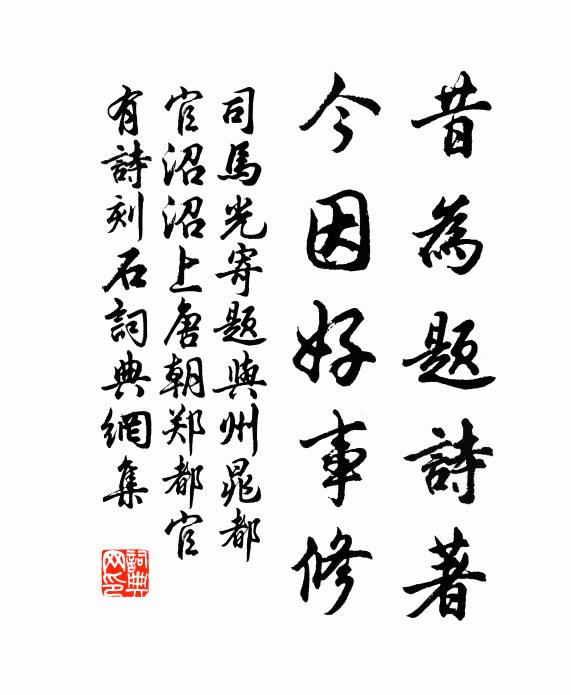 昔為題詩著
今因好事修
司馬光寄題興州晁都
官沼沼上唐朝郑都官
有詩刻石詞典網集
詞典
网印